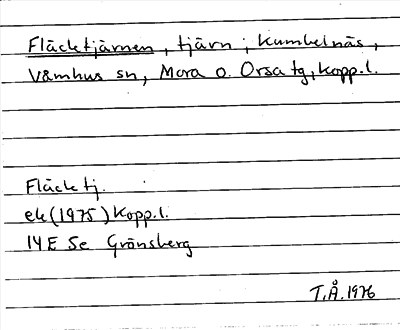 Fläcktjärnen, tjärn; Kumbelnäs,
Våmhus sn, Mora o. Orsa tg, Kopp.l.
Fläcktj.
ek (1975) Kopp.l.
14E 5e Grönsberg
T.Å. 1976